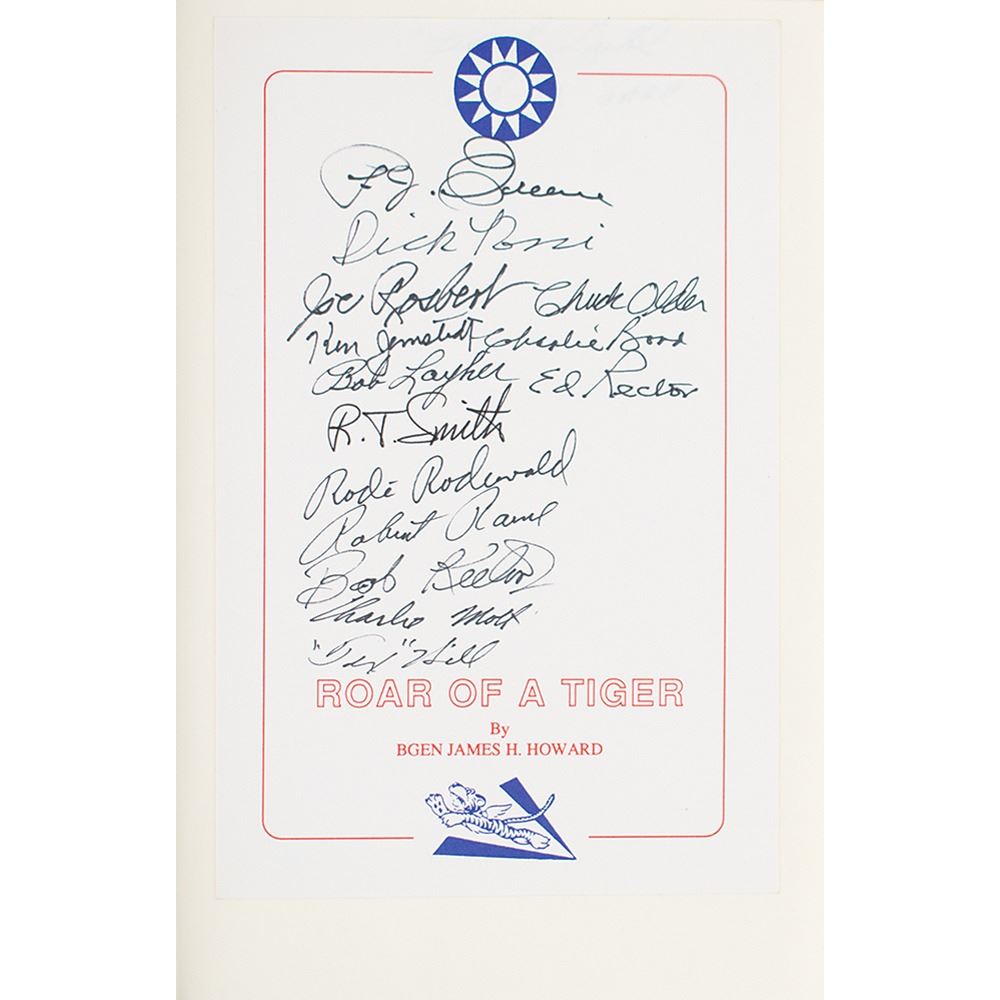 P.J. Greene
Dick Rossi
Joe Rosbert Chuck Older
Ken Jernstedt Charlie Bond
Bob Layher Ed Rector
R.T. Smith
Rode Rodewald
Robert
Bob Keeton
Charlie Mott
"Tex" Hill
ROAR OF A TIGER
By
BGEN JAMES H. HOWARD